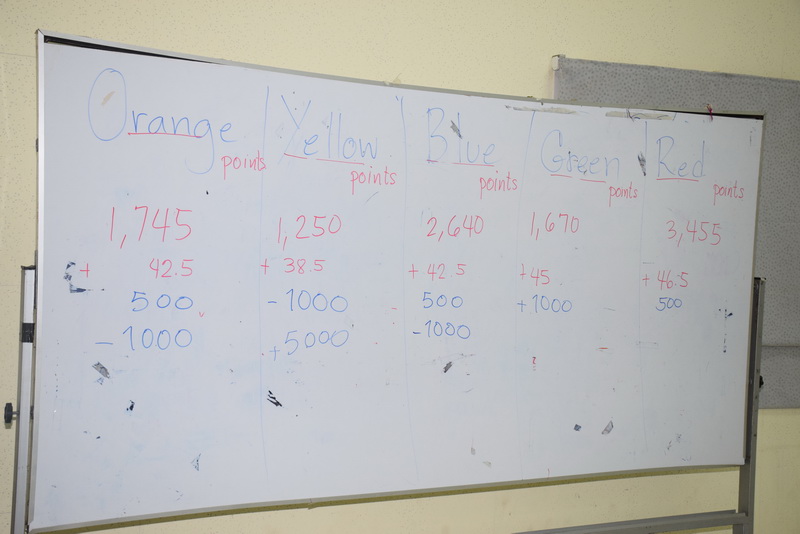 Orange
points
1,745
+ 42.5
500
- 1000
Yellow
points
1,250
+ 38.5
- 1000
+5000
Blue
points
2,640
+ 42.5
500
-1000
Green
points
1,670
+45
+1000
Red
points
3,455
+ 46.5
500